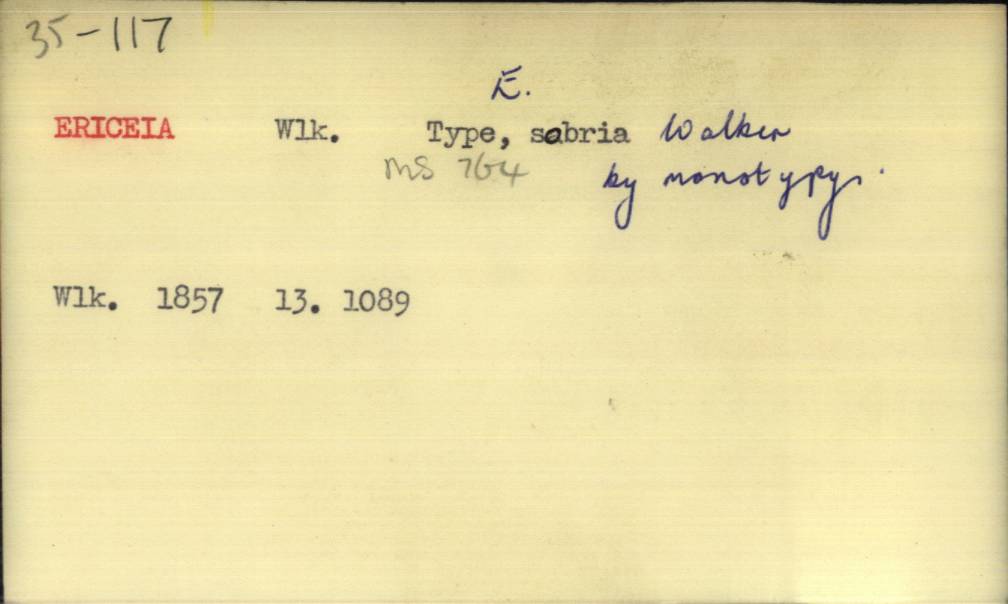 35-117
E.
ERICEIA Wlk. Type, sobria Walker
MS 764 by monotypy.
Wlk. 1857 13. 1089